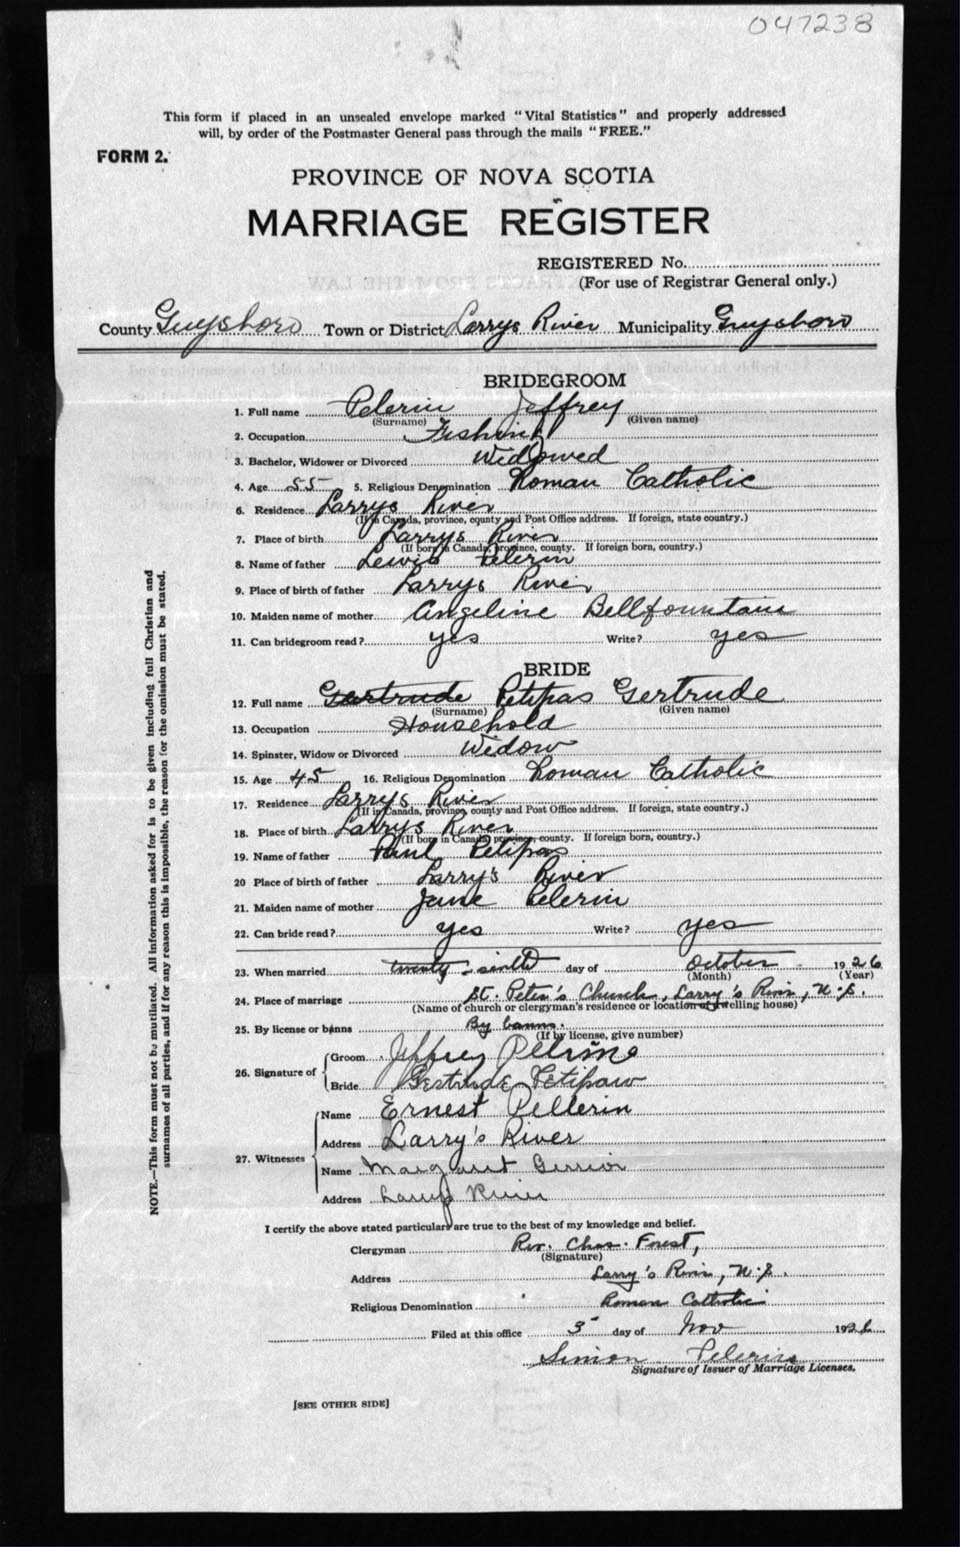 047238
This form if placed in an unsealed envelope marked "Vital Statistics" and properly addressed
will, by order of the Postmaster General pass through the mails "FREE."
FORM 2.
PROVINCE OF NOVA SCOTIA
MARRIAGE REGISTER
REGISTERED No.
(For use of Registrar General only.)
County Guysboro Town or District Larrys River Municipality Guysboro
BRIDEGROOM
1. Full name Pelerin Jeffrey
(Surname) (Given name)
2. Occupation Fishing
3. Bachelor, Widower or Divorced Widowed
4. Age 55 5. Religious Denomination Roman Catholic
6. Residence Larrys River
(If in Canada, province, county and Post Office address. If foreign, state country.)
7. Place of birth Larrys River
(If born in Canada, province, county. If foreign born, country.)
8. Name of father Lewis Pelerin
9. Place of birth of father Larrys River
10. Maiden name of mother Angeline Bellfountain
11. Can bridegroom read? yes Write? yes
BRIDE
12. Full name Gertrude Petipas Gertrude
(Surname) (Given name)
13. Occupation Household
14. Spinster, Widow or Divorced Widow
15. Age 45 16. Religious Denomination Roman Catholic
17. Residence Larrys River
(If in Canada, province, county and Post Office address. If foreign, state country.)
18. Place of birth Larrys River
(If born in Canada, province, county. If foreign born, country.)
19. Name of father Paul Petipas
20 Place of birth of father Larry's River
21. Maiden name of mother Jane Pelerin
22. Can bride read? yes Write? yes
23. When married twenty-sixth day of October 1926
(Month) (Year)
24. Place of marriage St. Peter's Church, Larry's River, N.S.
(Name of church or clergyman's residence or location of dwelling house)
25. By license or banns By banns.
(If by license, give number)
26. Signature of Groom Jeffrey Pelrine
Bride Gertrude Petipaw
27. Witnesses Name Ernest Pellerin
Address Larry's River
Name Margaret Gerrior
Address Larrys River
I certify the above stated particulars are true to the best of my knowledge and belief.
Clergyman Rev. Chas. Forest,
(Signature)
Address Larry's River, N.S.
Religious Denomination Roman Catholic
Filed at this office 3 day of Nov 1926
Simon Pelerin
Signature of Issuer of Marriage Licenses.
[SEE OTHER SIDE]
NOTE.—This form must not be mutilated. All information asked for is to be given including full Christian and
surnames of all parties, and if for any reason this is impossible, the reason for the omission must be stated.